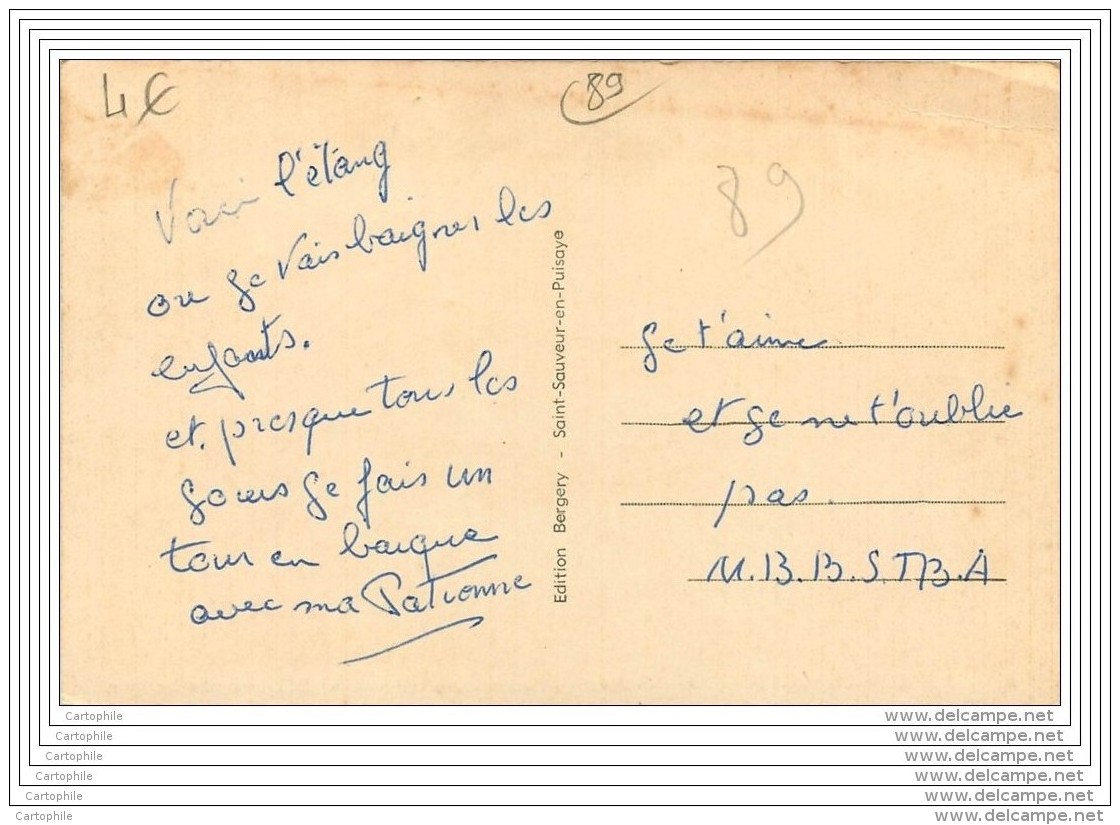 4€
89
89
Voici l'étang
ou je vais baigner les
enfants.
et presque tous les
jours je fais un
tour en barque
avec ma Patronne
Edition Bergery - Saint-Sauveur-en-Puisaye
je t'aime
et je ne t'oublie
pas
M.B.B.S.T.B.A
Cartophile
www.delcampe.net
Cartophile
www.delcampe.net
Cartophile
www.delcampe.net
Cartophile
www.delcampe.net
Cartophile
www.delcampe.net
Cartophile
www.delcampe.net